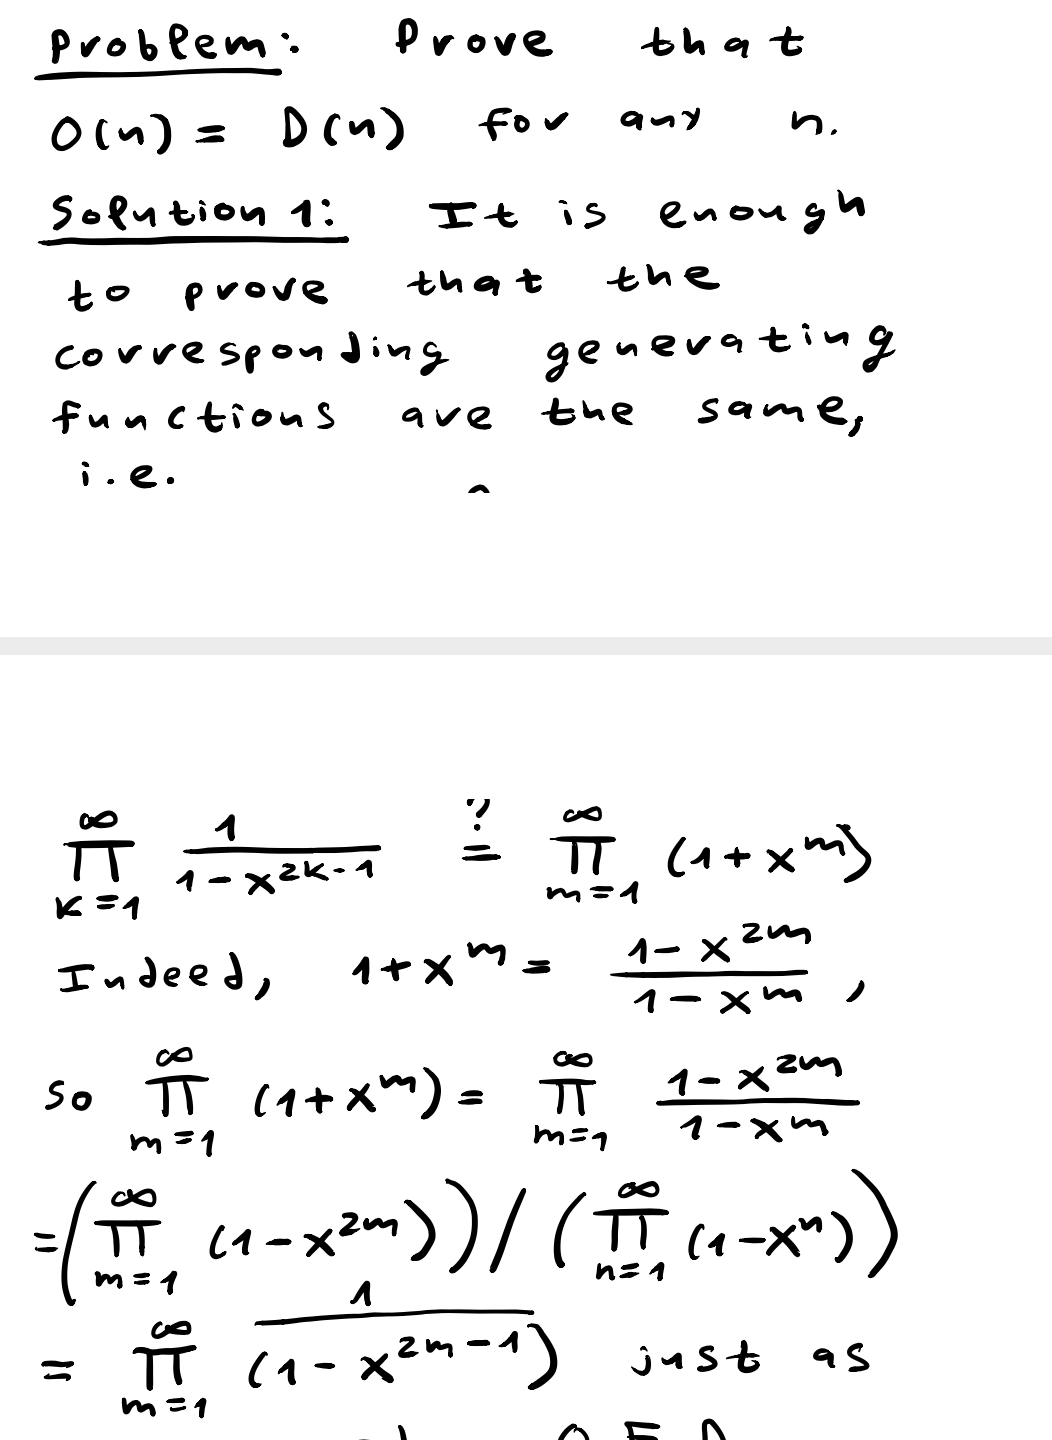 Problem: Prove that
O(n) = D(n) for any n.
Solution 1: It is enough
to prove that the
corresponding generating
functions are the same,
i.e.
∏_{k=1}^{∞} 1/(1-x^{2k-1}) ≟ ∏_{m=1}^{∞} (1+x^m)
Indeed, 1+x^m = (1-x^{2m})/(1-x^m),
so ∏_{m=1}^{∞} (1+x^m) = ∏_{m=1}^{∞} (1-x^{2m})/(1-x^m)
= (∏_{m=1}^{∞} (1-x^{2m})) / (∏_{n=1}^{∞} (1-x^n))
= ∏_{m=1}^{∞} 1/(1-x^{2m-1}) just as